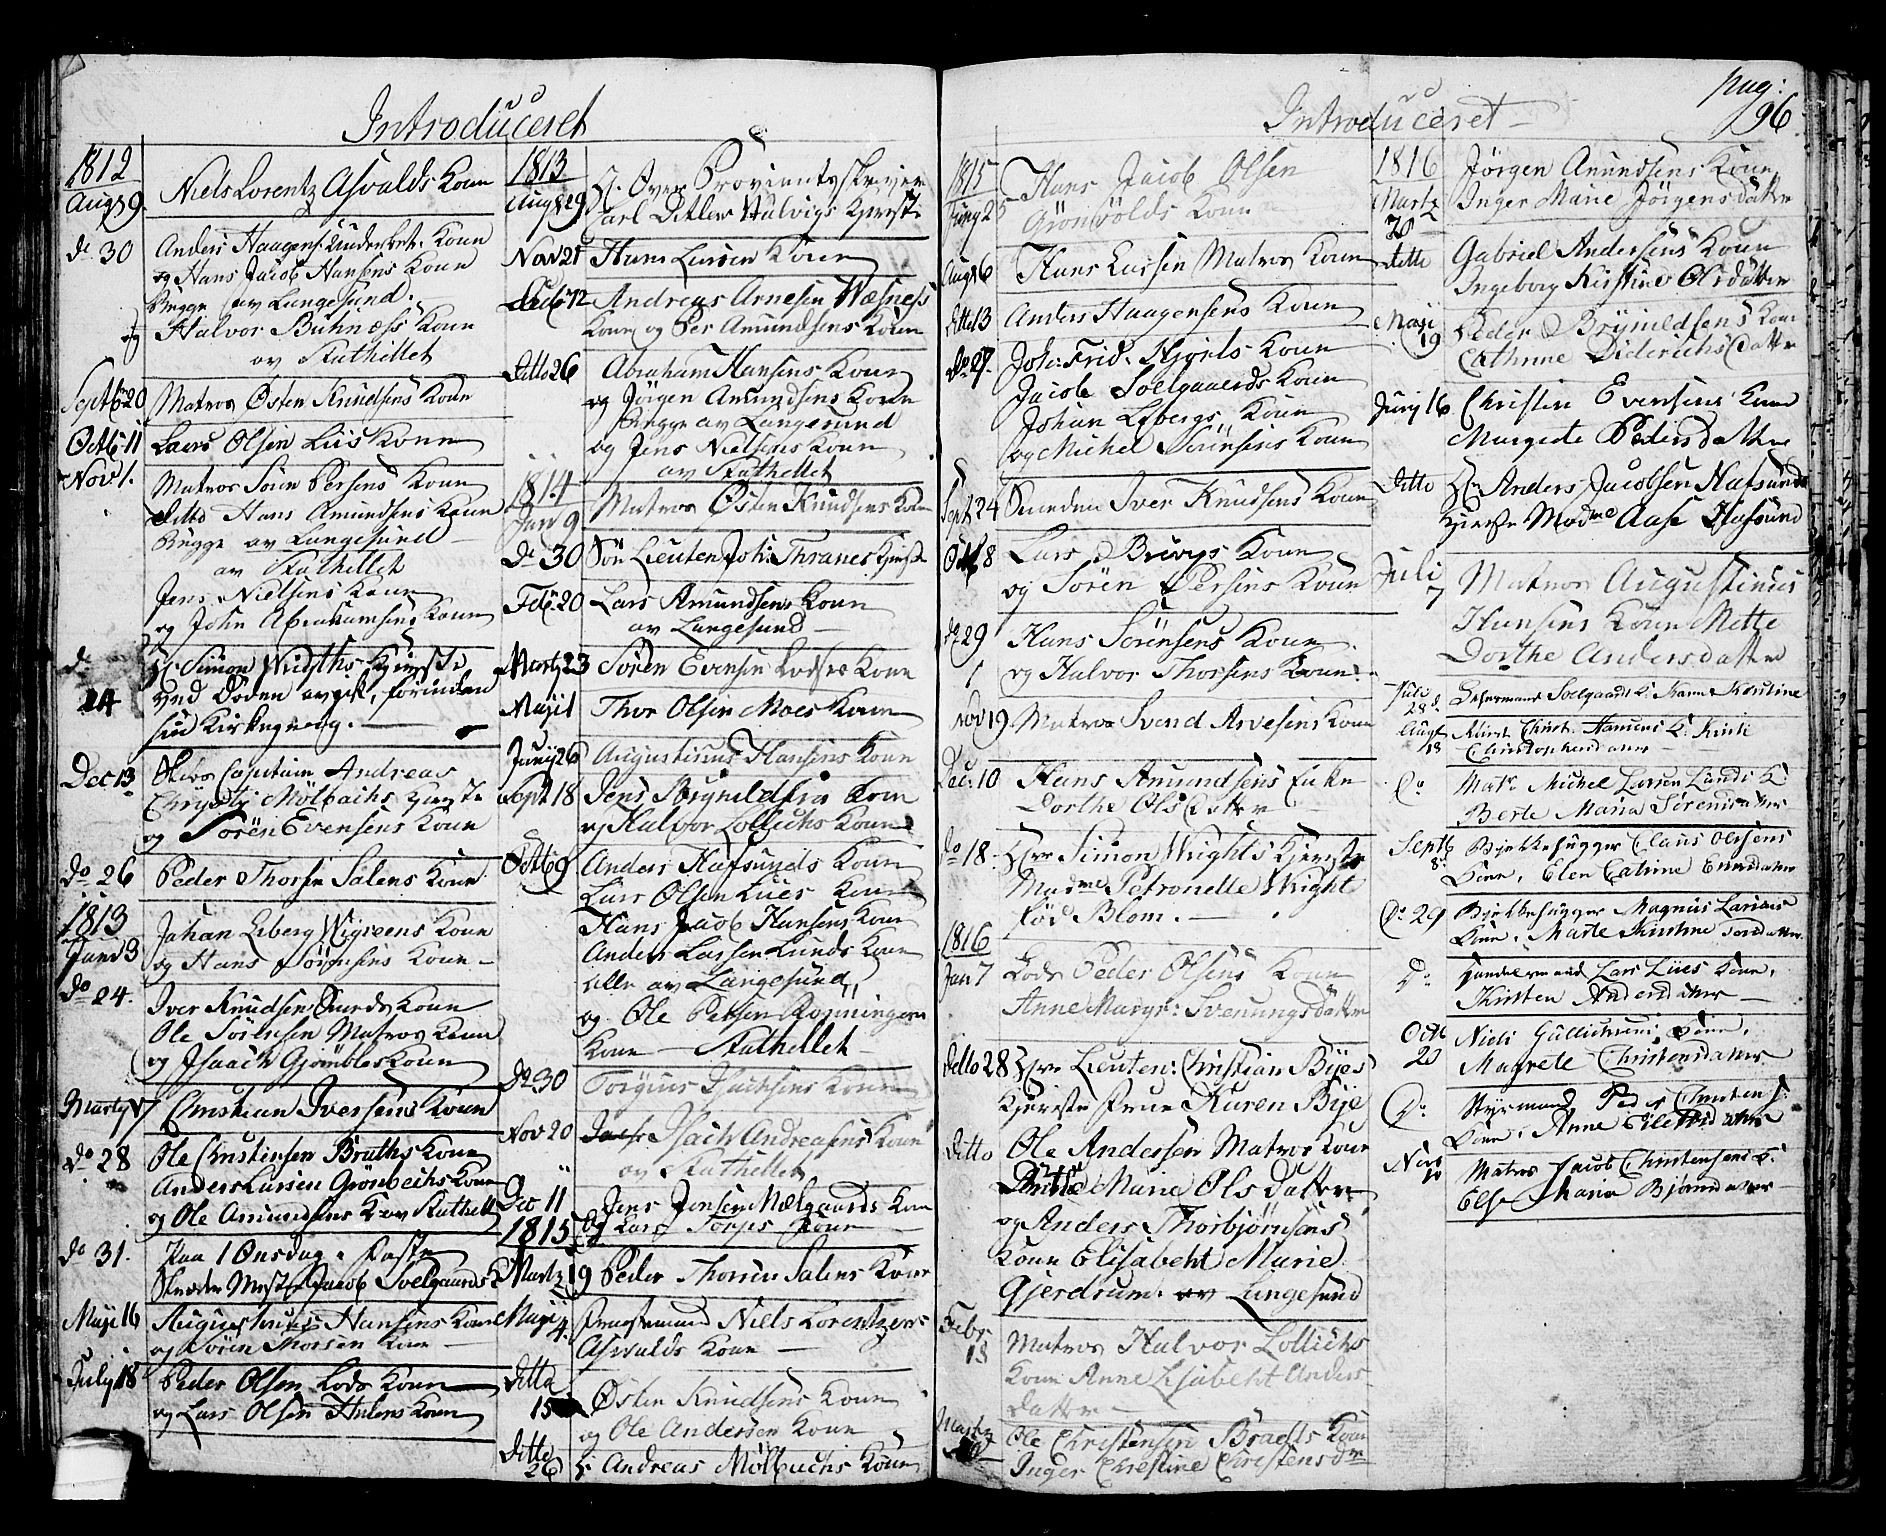 Introduceret
1812
Aug 9. Niels Lorentz Asvalds Kone
do 30 Anders Haagens. Underbet. Kone
og Hans Jacob Hansens Kone
Begge av Langesund.
og Halvor Buhness Kone
av Stathellet
Septb 20 Matros Østen Knudsens Kone
Octb 11 Lars Olsen Lüs Kone
Nov 1. Matros Sören Persens Kone
Ditto Hans Amundsens Kone
Begge av Langesund
av Stathellet
Jens Nielsens Kone
og John Abrahamsens Kone
do 24 Hr. Simon Wrigths Kjerste
ved Døden avgik, forinden
sin Kirkegang.
Dec 13 Skibs Capitain Andreas
Chrysti Mölbachs Kjerste
og Sören Evensens Kone
do 26 Peder Thorsen Salens Kone
1813
Janr 3 Johan Leberg Wigreens Kone
og Hans Sörensens Kone
do 24. Iver Knudsen Smeds Kone
Ole Torkilsen Matros Kone
og Isaach Gjömbles Kone
Marty 7 Christian Iversens Kone
do 28 Ole Christensen Braths Kone
Anders Larsen Grönbechs Kone
og Ole Amundsens K. av Stathellet
do 31. Paa 1 Onsdag i Faste
Skræder Mester Jacob Soelgaards K
Maji 16 Augustinus Hansens Kone
og Sören Thorsen Kone
July 18 Peder Olsen Lods Kone
og Lars Olsen Hulens Kone
1813
Aug 29 Hr. Over Proviantskriver
Carl Ditlev Hulvigs Kjerste
Nov 21 Hans Larsen Kone
Decb 12 Andreas Arnesen Næsness
Kone og Per Amundsens Kone
Ditto 26 Abraham Hansens Kone
og Jörgen Amundsens Kone
Begge av Langesund
og Jens Nielsens Kone
av Stathellet
1814
Janr 9 Matros Østen Knudsens Kone
do 30 Sön Lieuten Joh: Thranes Kjerste
Feb. 20 Lars Amundsens Kone
av Langesund
Marty 23 Sören Evensen Lodses Kone
Maji 1 Thor Olsen Moes Kone
Junij 26 Augustinus Hansens Kone
Sept 18 Jens Brynildsen Kone
og Halvor Lollichs Kone
Octb 9 Anders Hafsunds Kone
Lars Olsen Lües Kone
Hans Jacob Hansens Kone
Anders Larsen Lunds Kone
alle av Langesund
og Ole Persen Rönningen
Kone Stathellet
do 30 Torgius Isachsens Kone
Nov 20 Isach Andreasens Kone
av Stathellet
Dec 11 Jens Jensen Mælgaards Kone
1815 og Lars Torses Kone
Martz 19 Peder Thorsen Salens Kone
Maji 4. Procstmand Niels Lorentzens
Asvalds Kone
Ditto
15 Østen Knudsens Kone
og Ole Andersen Kone
Ditto
26 Hr Andreas Mölbachs Kone
pag:
96
Introduceret
1815
Juny 25 Hans Jacob Olsen
Grönvolds Kone
Aug 6 Hans Larsen Matros Kone
Ditto 13 Anders Haagensens Kone
do 27. Joh: Frid. Kjørls Kone
Jacob Soelgaards Kone
Johan Lebergs Kone
og Michel Sörensens Kone
Sept 24 Smeden Iver Knudsens Kone
Octb 8 Lars Bruvys Kone
og Sören Persens Kone
do 29 Hans Sörensens Kone
og Halvor Thorsens Kone
Nov 19. Matros Svend Arvesens Kone
Dec. 10 Hans Amundsens Enke
Dorthe Ols Datter
do 18. Herr Simon Wrights Kjerste
Madme Petronelle Wright
fød Blom.
1816
Jan 7 Lods Peder Olsens Kone
Anne Margr: Svenungsdatter
Ditto 28 Herr Lieuten: Christian Byes
Kjerste Frue Karen Bye
Ditto Ole Andersen Matros Kone
Birthe Marie Ols datter
og Anders Thorbjörnsens
Kone Elisabeht Marie
Gjerdrum. av Langesund
Febr.
18 Matros Halvor Lollichs
Kone Anne Lisabeht Anders
datter
Martz
Ole Christensen Braths Kone
Inger Christine Christens dr
1816
Martz
20 Jörgen Amundsens Kone
Inger Marie Jörgens datter
ditto Gabriel Andersens Kone
Ingeborg Kirstine Olsdatter
Maji
19 Peder Brynildsens Kone
Cathrine Diderichs datter
Junj 16 Christen Evensens Kone
Margrete Peders datter
Ditto Hr. Anders Jacobsen Hafsunds
Kjerste Madme Aase Hafsund
Juli
7 Matros Augustinus
Hansens Kone Mette
Dorthe Andersdatter
Juli
28 d. Soelgaards K. Karen Kirstine
Aug
18 Christ. Hansens K. Kirsti
Christophersdatter
Do Matr Michel Larsen Lunds K.
Berte Maria Sörensdatter
Septb
8 Bjelkehugger Claus Olsens
Kone, Elen Catrine Evensdatter
Do 29 Bjelkehugger Magnus Larsens
Kone. Marte Kirstine Torsdatter
Do Handelsmand Lars Lües Kone,
Kirsten Andersdatter
Octb
20 Niels Gullichsens Kone,
Magrete Christensdatter
Do Styrmand Peder Christens.
Kone. Anne Elevsdatter
Novb
10 Matros Jacob Christensens K.
Else Maria Bjørnsdatter